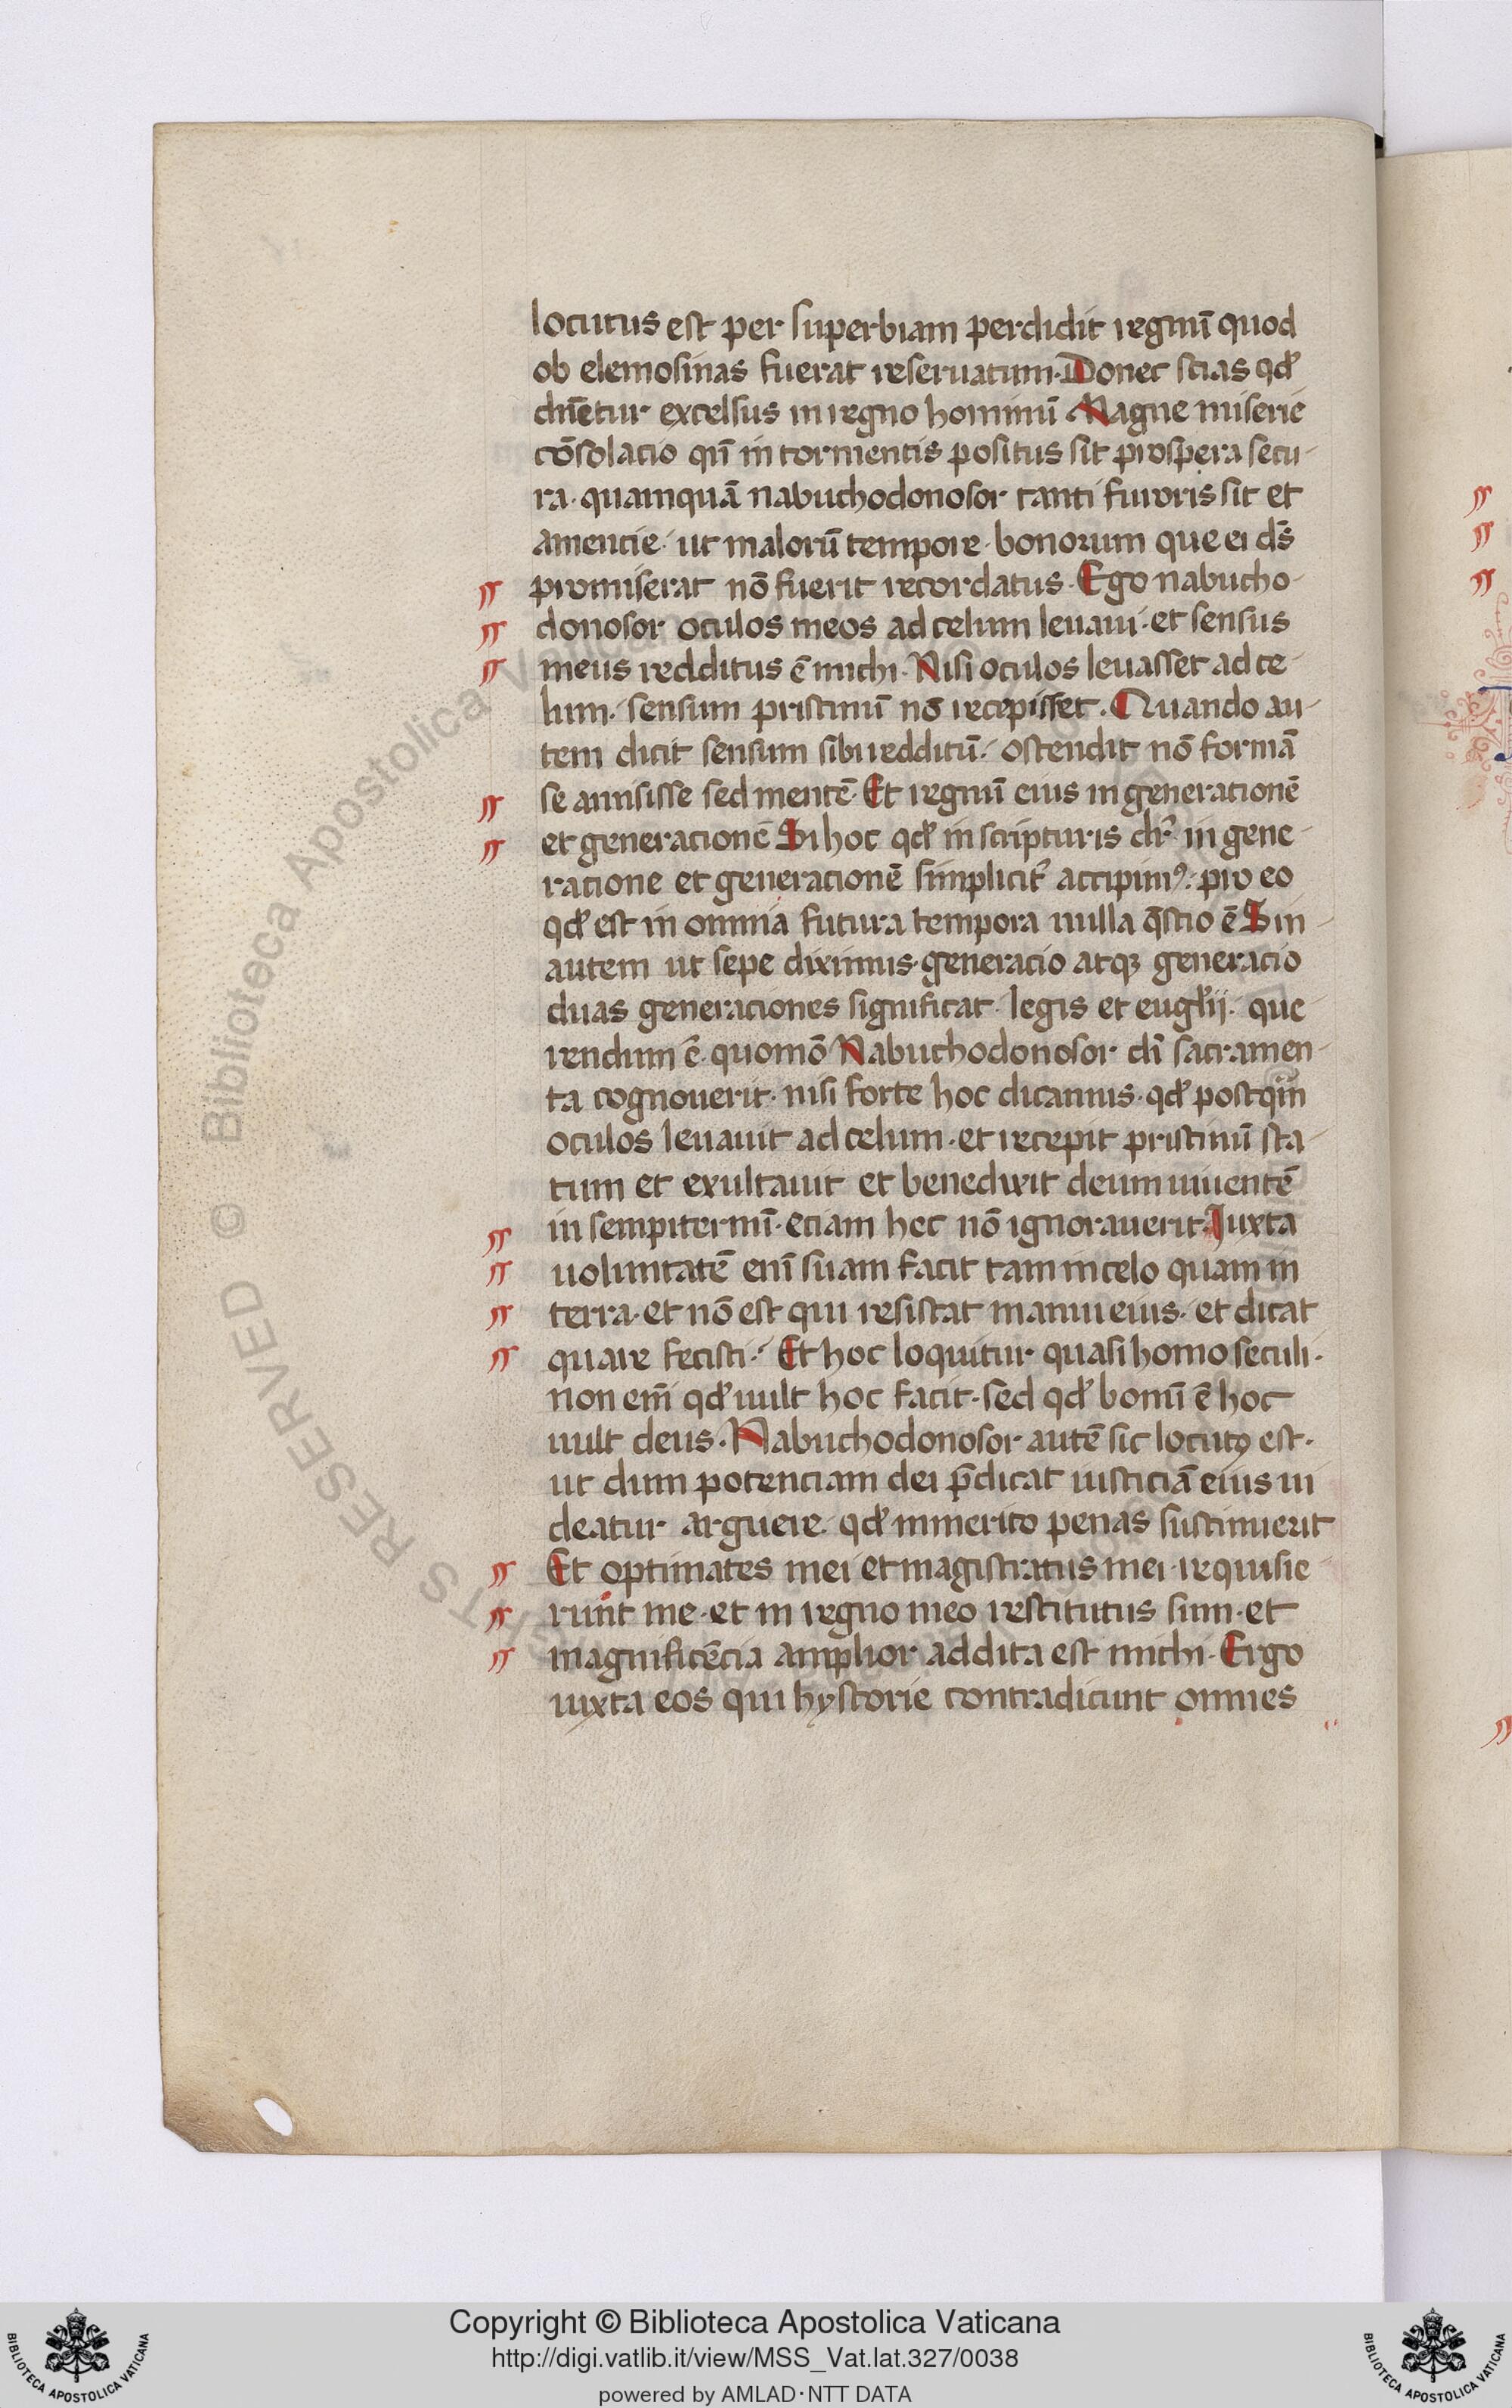 locutus est per superbiam perdidit regnū quod
ob elemosinas fuerat reseruatum. Donec scias qđ
dn̄etur excelsus in regno hominū Magne miserie
cōsolacio qn̄ in tormentis positus sit prospera secu-
ra. quamquā nabuchodonosor tanti furoris sit et
amencie. ut malorū tempore. bonorum que ei ds̄
promiserat nō fuerit recordatus. Ego nabucho-
donosor oculos meos ad celum leuaui. et sensus
meus redditus ē michi. Nisi oculos leuasset ad ce-
lum. sensum pristinū nō recepisset. Quando au-
tem dicit sensum sibi redditū. ostendit nō formā
se amisisse sed mentē. Et regnū eius in generationē
et generacionē Si hoc qđ in scripturis dr̄ in gene-
ratione et generacionē simplicit̉ accipimꝰ. pro eo
qđ est in omnia futura tempora nulla q̄stio ē Sin-
autem ut sepe diximus. generacio atqꝫ generacio
duas generaciones significat. legis et eugl̄ii. que-
rendum ē. quomō Nabuchodonosor di̅ sacramen-
ta cognouerit. nisi forte hoc dicamus. qđ postqm̄
oculos leuauit ad celum. et recepit pristinū sta-
tum et exultauit et benedixit deum uiuentē
in sempiternū. eciam hec nō ignorauerit. Iuxta
uoluntatē enī suam facit tam in celo quam in
terra. et nō est qui resistat manui eius. et dicat
quare fecisti. Et hoc loquitur quasi homo seculi.
non em̄ qđ uult hoc facit. sed qđ bonū ē hoc
uult deus. Nabuchodonosor autē sic locutꝰ est.
ut dum potenciam dei p̄dicat iusticiā eius ui
deatur arguere. qđ inmerito penas sustinuerit
Et optimates mei et magistratus mei. requisie-
runt me. et in regno meo restitutus sum. et
magnificēcia amplior addita est michi. Ergo
iuxta eos qui hystorie contradicunt omnes
Biblioteca Apostolica Vaticana
RESERVED ©
Copyright © Biblioteca Apostolica Vaticana
http://digi.vatlib.it/view/MSS_Vat.lat.327/0038
powered by AMLAD·NTT DATA
BIBLIOTECA APOSTOLICA VATICANA
BIBLIOTECA APOSTOLICA VATICANA